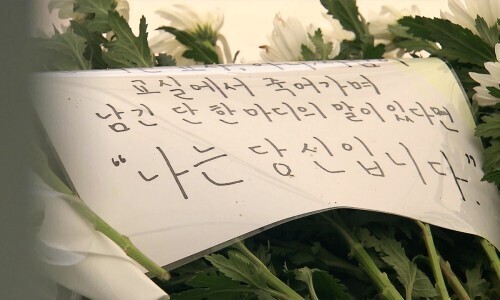 교실에서 죽어가며
남긴 단 한마디의 말이 있다면
“나는 당신입니다.”